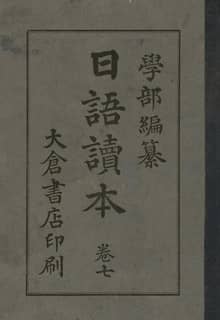 學部編纂
日語讀本
卷七
大倉書店印刷